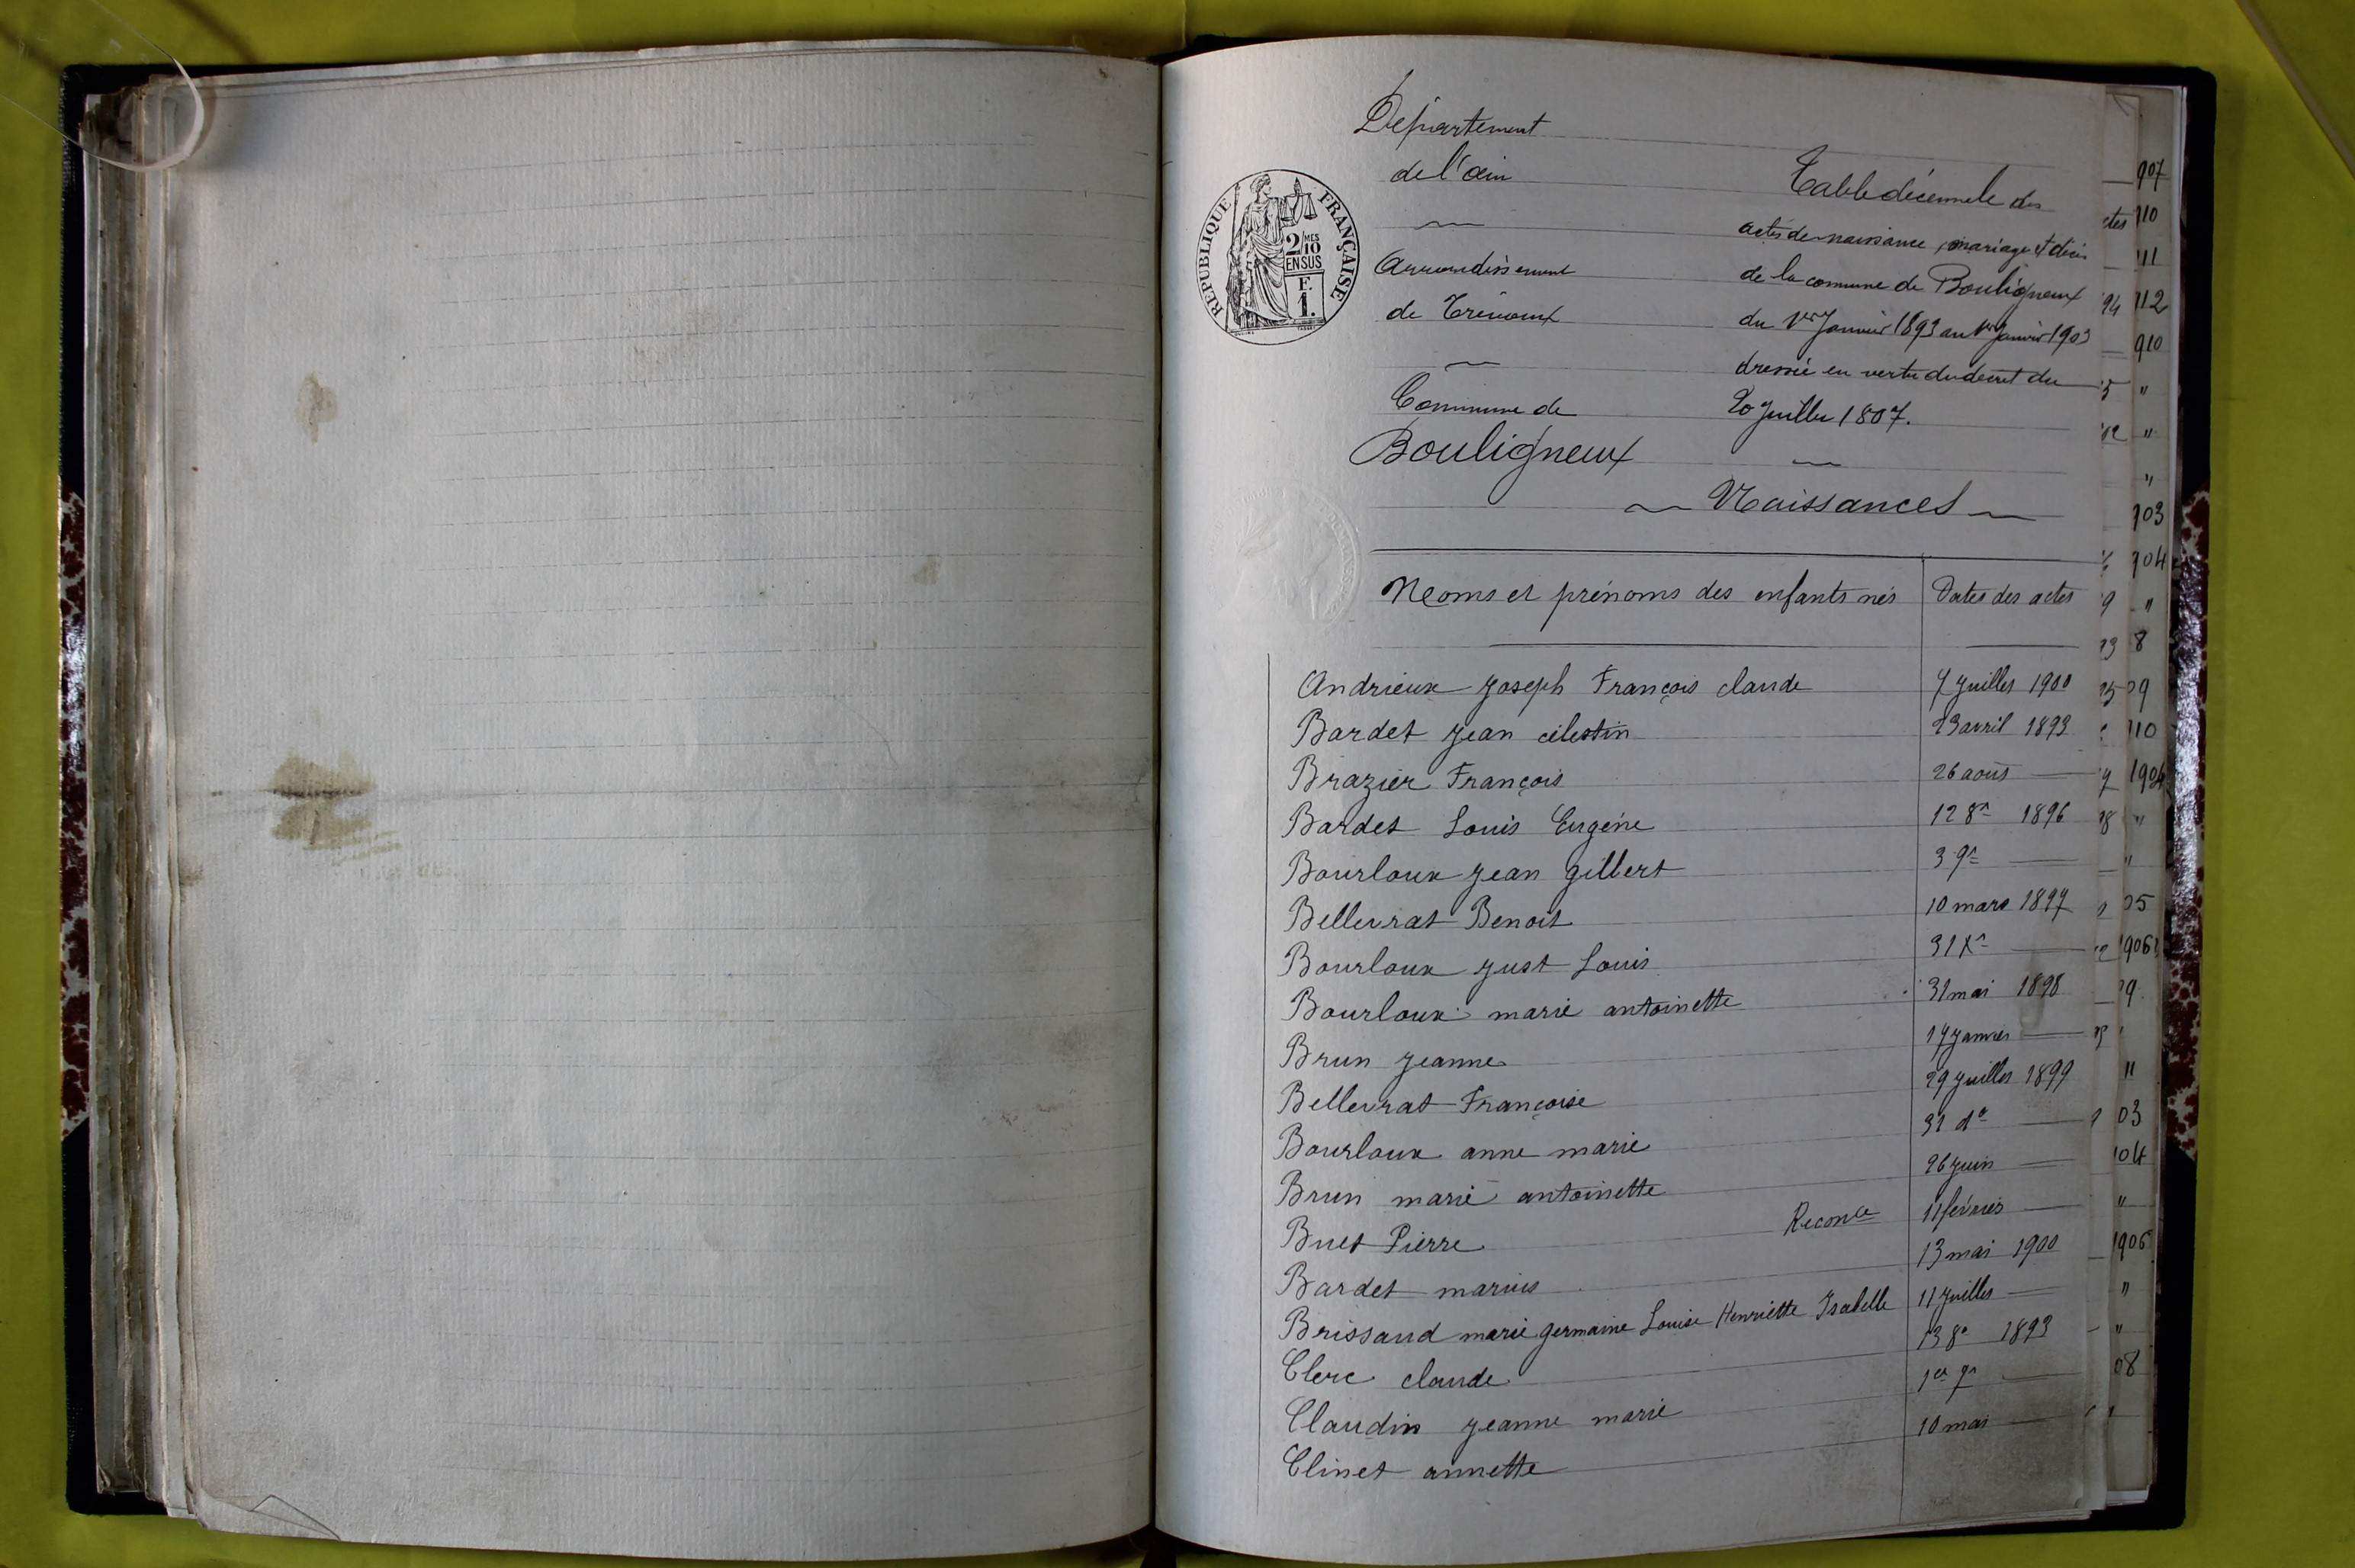 Département
de l'ain
Arrondissement
de Trévoux
Commune de
Bouligneux
REPUBLIQUE FRANÇAISE
2/10 MES
EN SUS
F.
1.
Table décennale des
actes de naissance, mariage et décès
de la commune de Bouligneux
du 1er Janvier 1893 au 1er Janvier 1903
dressée en vertu du décret du
20 Juillet 1807.
Naissances
Noms et prénoms des enfants nés Dates des actes
Andrieux Joseph François claude 7 Juillet 1900
Bardet Jean célestin 23 avril 1893
Brazier François 26 août —
Bardet Louis Eugène 12 8re 1896
Bourloux Jean Gilbert 3 9re —
Bellevrat Benoit 10 mars 1897
Bourloux Just Louis 31 Xre —
Bourloux marie antoinette 31 mai 1898
Brun Jeanne 17 Janvier —
Bellevrat Françoise 29 Juillet 1899
Bourloux anne marie 31 do —
Brun marie antoinette 26 Juin —
Buet Pierre Reconce 11 février —
Bardet marius 13 mai 1900
Brissaud marie germaine Louise Henriette Isabelle 11 Juillet —
Clerc claude 13 8e 1893
Claudin Jeanne marie 1er 9re —
Clinet annette 10 mai —
907
110
111
112
910
"
"
"
903
904
"
8
09
110
1904
"
"
05
1906
9
"
03
104
"
1906
"
"
08